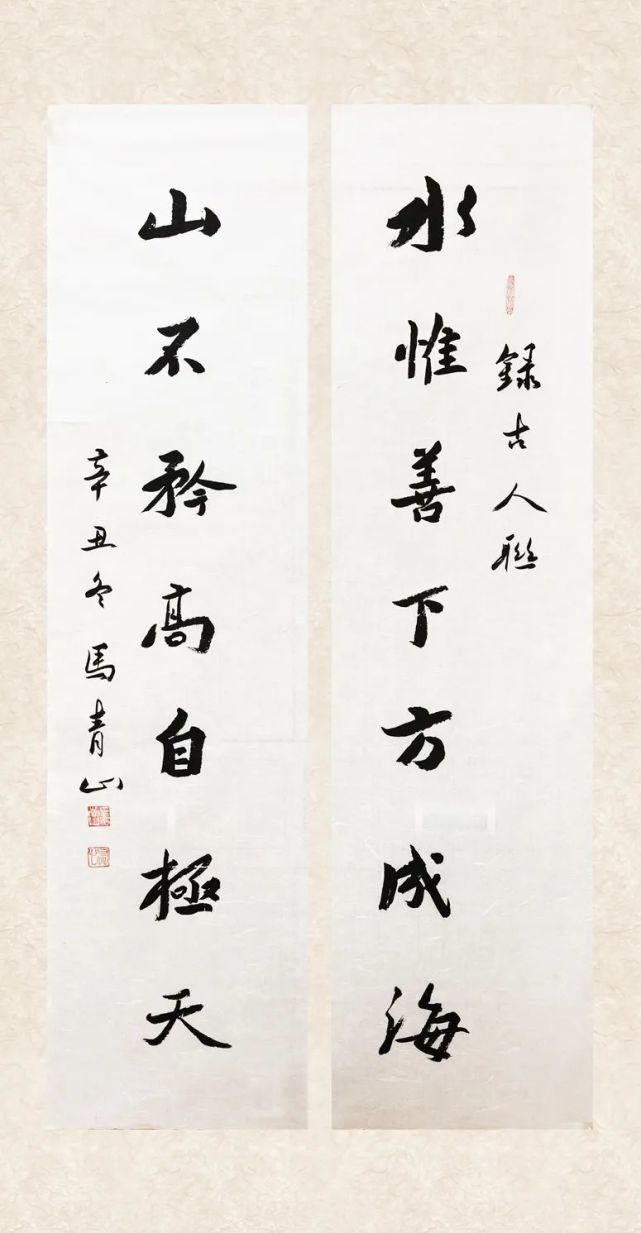 錄古人聯
水惟善下方成海
山不矜高自極天
辛丑冬馬青山